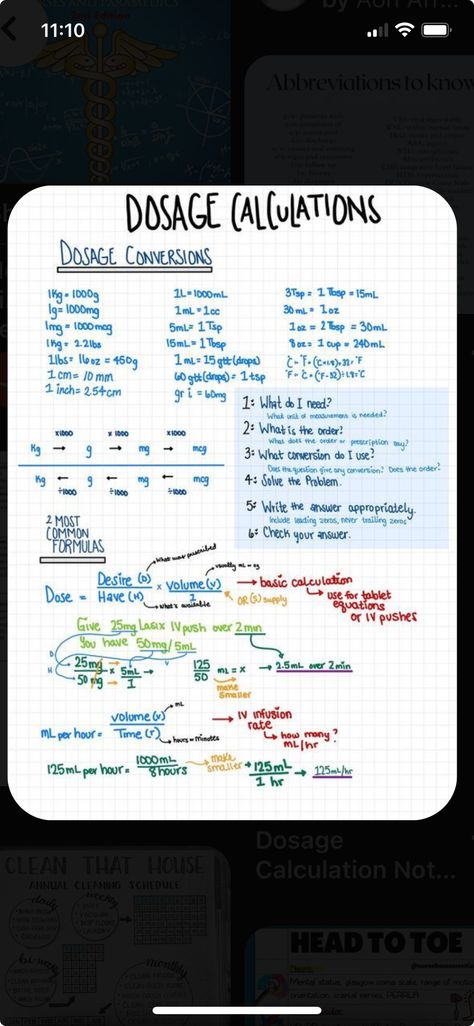 11:10
by Aon Art...
SES AND PARAMEDICS
2nd Edition
Abbreviations to know
DOSAGE CALCULATIONS
DOSAGE CONVERSIONS
1Kg = 1000g
1g = 1000mg
1mg = 1000mcg
1Kg = 2.2lbs
1lbs = 16oz = 450g
1cm = 10mm
1inch = 2.54cm
1L = 1000mL
1mL = 1cc
5mL = 1Tsp
15mL = 1Tbsp
1mL = 15gtt(drops)
60gtt(drops) = 1tsp
gr i = 60mg
3Tsp = 1Tbsp = 15mL
30mL = 1oz
1oz = 2Tbsp = 30mL
8oz = 1cup = 240mL
1: What do I need?
What unit of measurement is needed?
2: What is the order?
What does the order or prescription say?
3: What conversion do I use?
Does the question give any conversion? Does the order?
4: Solve the Problem.
5: Write the answer appropriately.
Include leading zeros, never trailing zeros
6: Check your answer.
x1000 x1000 x1000
Kg → g → mg → mcg
Kg ← g ← mg ← mcg
÷1000 ÷1000 ÷1000
2 MOST
COMMON
FORMULAS
what was prescribed
usually mL or g
Dose = Desire (D) / Have (H) x Volume (V) / 1
what's available
OR (S) supply
→ basic calculation
↳ use for tablet
equations
or IV pushes
Give 25mg Lasix IV push over 2min
You have 50mg/5mL
D
H
V
25mg / 50mg x 5mL / 1 →
125 / 50 mL = x → 2.5mL over 2min
make
smaller
mL per hour = Volume (V) / Time (T)
mL
hours or minutes
→ IV infusion
rate
↳ how many?
mL/hr
125mL per hour = 1000mL / 8hours
→ make
smaller → 125mL / 1 hr → 125mL/hr
Dosage
Calculation Not...
CLEAN THAT HOUSE
ANNUAL CLEANING SCHEDULE
daily
weekly
bi-weekly
monthly
HEAD TO TOE
Mental status, glasgow coma scale, range of motion
orientation, cranial nerves, PERRLA